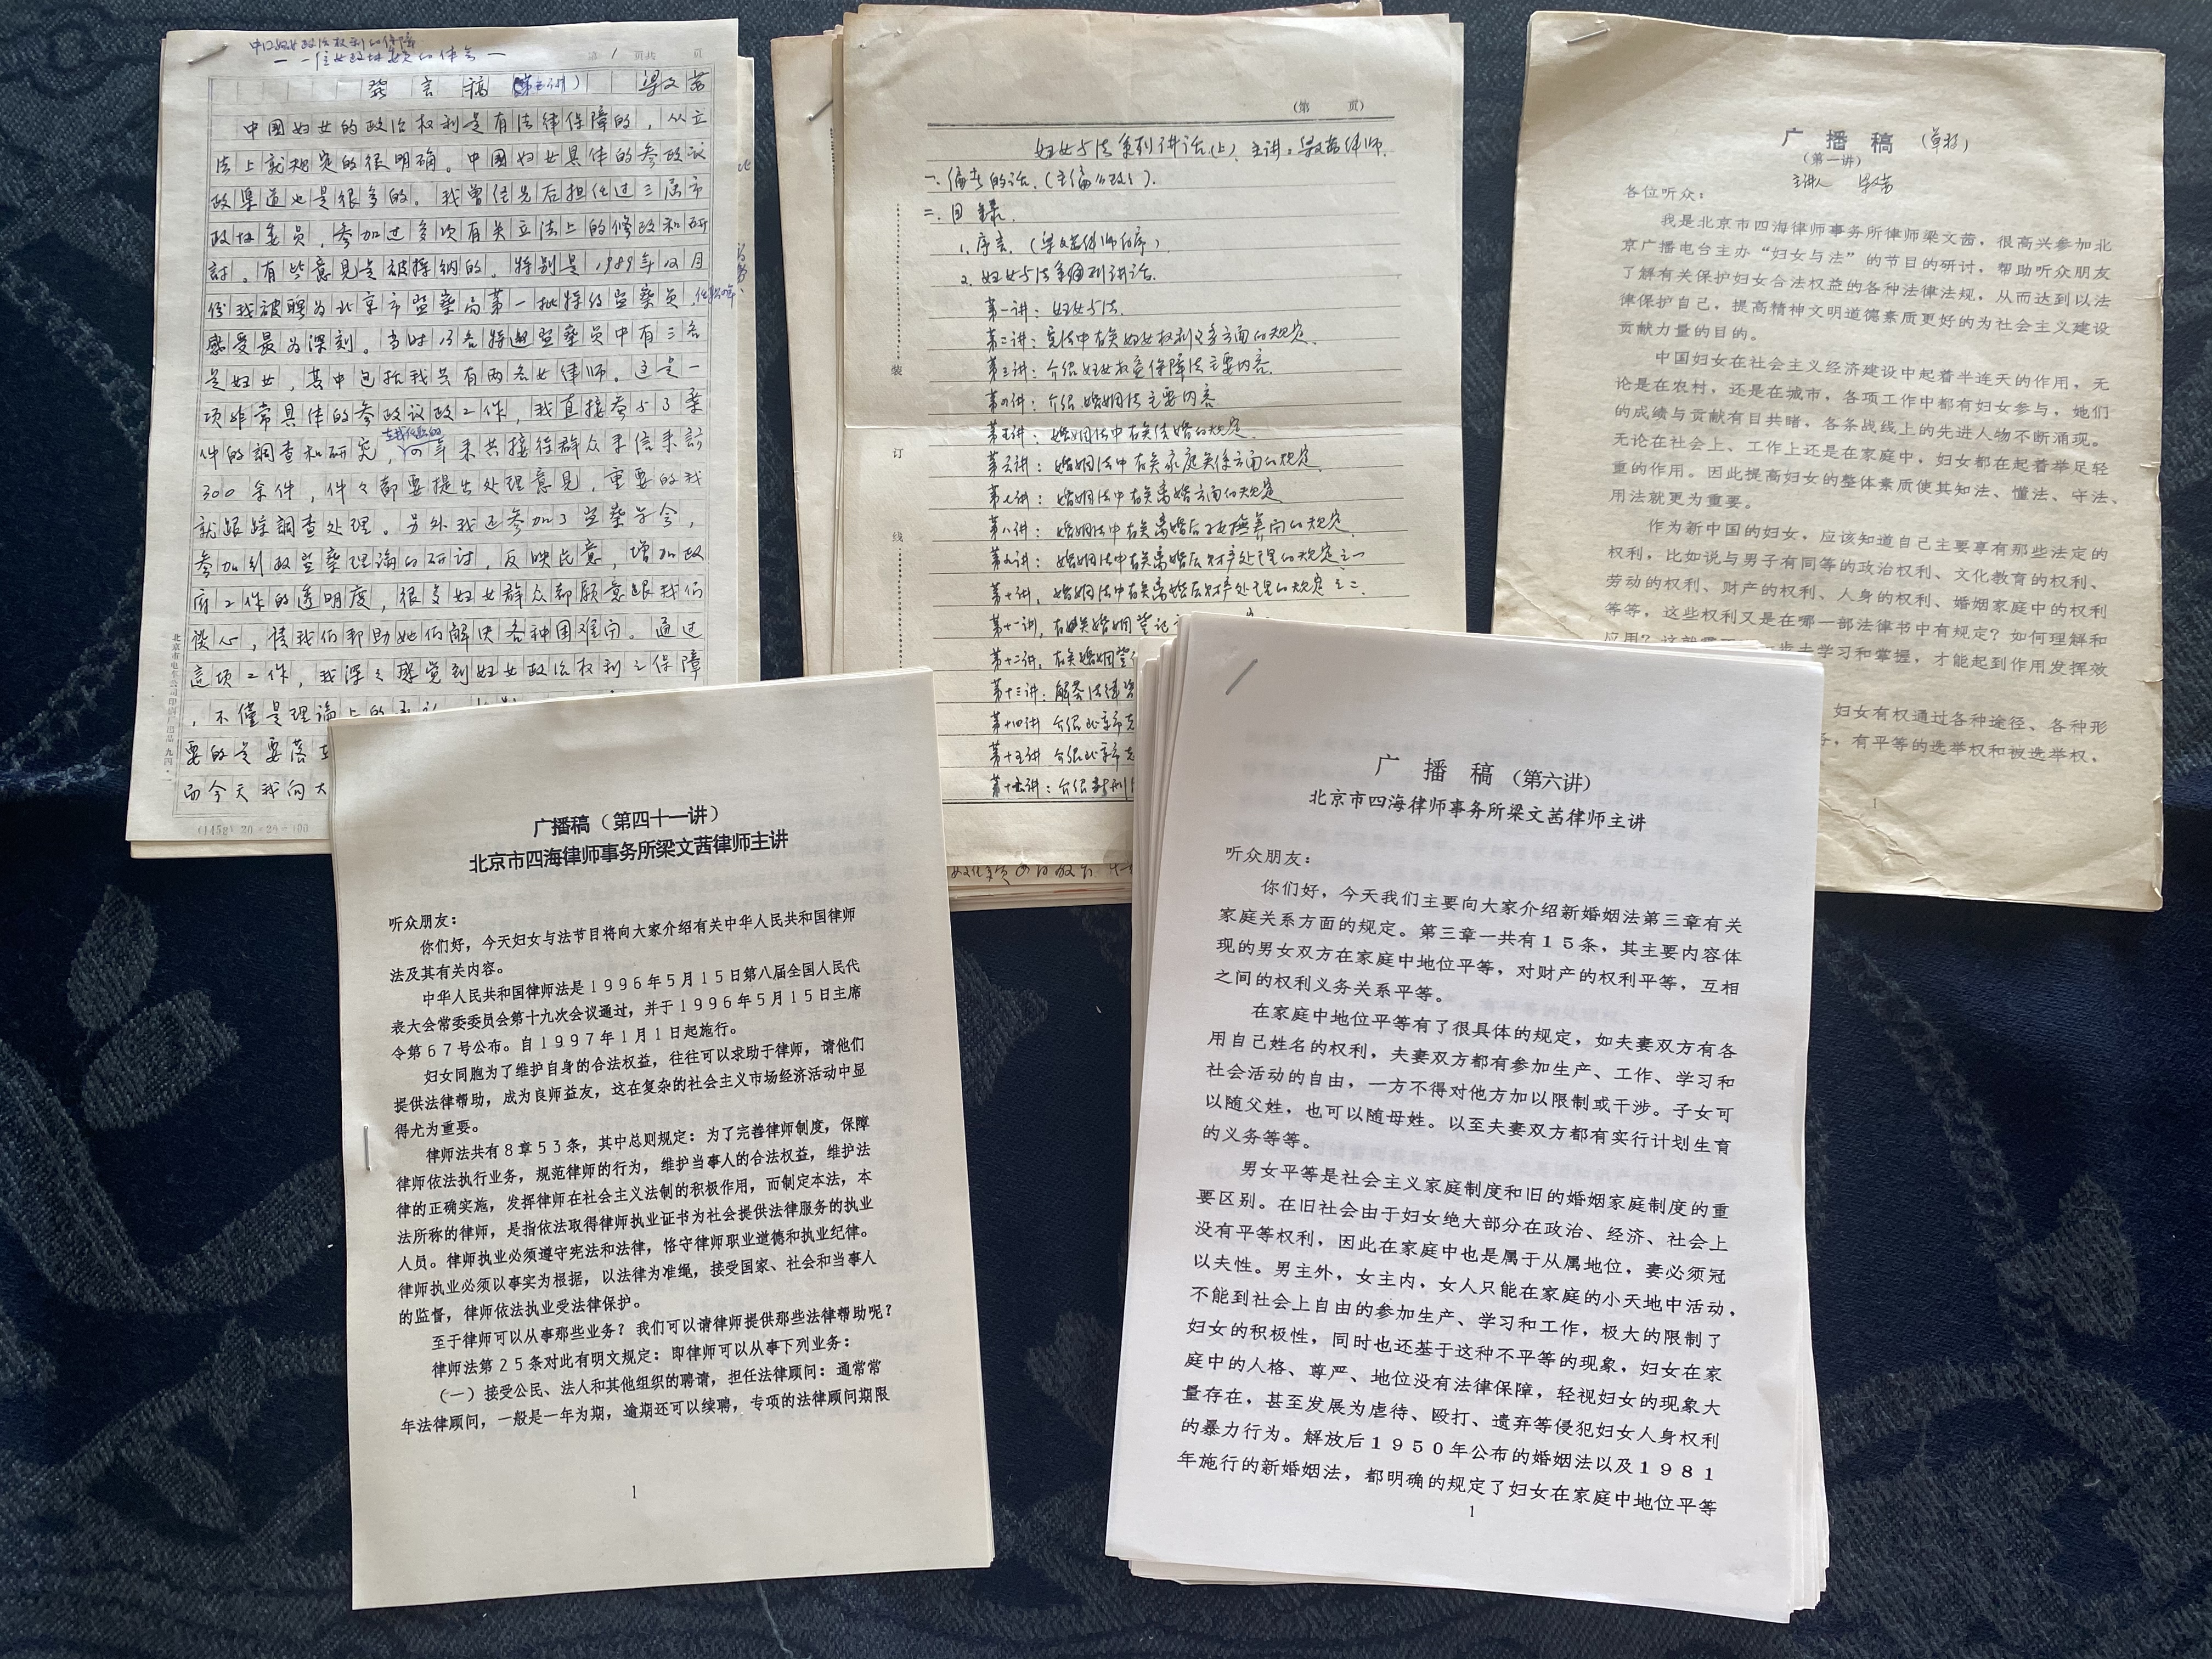 中国妇女政治权利的保障
一位女政协委员的体会一
第 1 页共 页
发言稿(第五讲) 梁文茜
中国妇女的政治权利是有法律保障的，从立
法上就规定的很明确。中国妇女具体的参政议
政渠道也是很多的。我曾任先后担任过三届市
政协委员，参加过多次有关立法上的修改和研
討。有些意见是被採纳的。特别是1989年12月
份我被聘为北京市监察局第一批特约监察员
感受最为深刻。当时13名特邀监察员中有三名
是妇女，其中包括我共有两名女律师。这是一
项非常具体的参政议政工作，我直接参与了案
件的調查和研究，四年来共接待群众来信来訪
300余件，件々都要提出处理意见，重要的我
就跟踪調查处理。另外我还参加了监察学会，
参加行政监察理論的研讨，反映民意，增加政
府工作的透明度，很多妇女群众都願意跟我们
谈心，请我们帮助她们解决各种困难问。通过
這项工作，我深々感觉到妇女政治权利之保障
，不僅是理論上的
要的是要落
而今天我向大
北京市电车公司印刷厂出品 九四·一
(1458) 20×20=400
(第 页)
妇女与法系列讲话(上) 主讲：梁文茜律师
一、编者的话.
二、目录.
1.序言.(梁文茜律师作序)
2.妇女与法系列讲话.
第一讲：妇女与法
第二讲：宪法中有关妇女权利义务方面的规定.
第三讲：介绍妇女权益保障法主要内容.
第四讲：介绍婚姻法主要内容
第五讲：婚姻法中有关结婚的规定.
第六讲：婚姻法中有关家庭关系方面的规定
第七讲：婚姻法中有关离婚方面的规定
第八讲：婚姻法中有关离婚后子女撫养问的规定
第九讲：婚姻法中有关离婚后财产处理的规定之一
第十讲，婚姻法中有关离婚后财产处理的规定之二.
第十一讲，有关婚姻登记
第十二讲，有关婚姻登
第十三讲：解答法律咨
第十四讲 介绍北京市
第十五讲 介绍北京市
介绍新刑
装
订
线
广播稿 (草稿)
(第一讲)
主讲人 梁文茜
各位听众：
我是北京市四海律师事务所律师梁文茜，很高兴参加北
京广播电台主办“妇女与法”的节目的研讨，帮助听众朋友
了解有关保护妇女合法权益的各种法律法规，从而达到以法
律保护自己，提高精神文明道德素质更好的为社会主义建设
贡献力量的目的。
中国妇女在社会主义经济建设中起着半连天的作用，无
论是在农村，还是在城市，各项工作中都有妇女参与，她们
的成绩与贡献有目共睹，各条战线上的先进人物不断涌现。
无论在社会上、工作上还是在家庭中，妇女都在起着举足轻
重的作用。因此提高妇女的整体素质使其知法、懂法、守法、
用法就更为重要。
作为新中国的妇女，应该知道自己主要享有那些法定的
权利，比如说与男子有同等的政治权利、文化教育的权利、
劳动的权利、财产的权利、人身的权利、婚姻家庭中的权利
等等，这些权利又是在哪一部法律书中有规定？如何理解和
应用？这就需 步去学习和掌握，才能起到作用发挥效
妇女有权通过各种途径、各种形
务，有平等的选举权和被选举权，
1
广播稿（第四十一讲）
北京市四海律师事务所梁文茜律师主讲
听众朋友：
你们好，今天妇女与法节目将向大家介绍有关中华人民共和国律师
法及其有关内容。
中华人民共和国律师法是1996年5月15日第八届全国人民代
表大会常委委员会第十九次会议通过，并于1996年5月15日主席
令第67号公布。自1997年1月1日起施行。
妇女同胞为了维护自身的合法权益，往往可以求助于律师，请他们
提供法律帮助，成为良师益友，这在复杂的社会主义市场经济活动中显
得尤为重要。
律师法共有8章53条，其中总则规定：为了完善律师制度，保障
律师依法执行业务，规范律师的行为，维护当事人的合法权益，维护法
律的正确实施，发挥律师在社会主义法制的积极作用，而制定本法，本
法所称的律师，是指依法取得律师执业证书为社会提供法律服务的执业
人员。律师执业必须遵守宪法和法律，恪守律师职业道德和执业纪律。
律师执业必须以事实为根据，以法律为准绳，接受国家、社会和当事人
的监督，律师依法执业受法律保护。
至于律师可以从事那些业务？我们可以请律师提供那些法律帮助呢？
律师法第25条对此有明文规定：即律师可以从事下列业务：
（一）接受公民、法人和其他组织的聘请，担任法律顾问：通常常
年法律顾问，一般是一年为期，逾期还可以续聘，专项的法律顾问期限
1
广播稿（第六讲）
北京市四海律师事务所梁文茜律师主讲
听众朋友：
你们好，今天我们主要向大家介绍新婚姻法第三章有关
家庭关系方面的规定。第三章一共有15条，其主要内容体
现的男女双方在家庭中地位平等，对财产的权利平等，互相
之间的权利义务关系平等。
在家庭中地位平等有了很具体的规定，如夫妻双方有各
用自己姓名的权利，夫妻双方都有参加生产、工作、学习和
社会活动的自由，一方不得对他方加以限制或干涉。子女可
以随父姓，也可以随母姓。以至夫妻双方都有实行计划生育
的义务等等。
男女平等是社会主义家庭制度和旧的婚姻家庭制度的重
要区别。在旧社会由于妇女绝大部分在政治、经济、社会上
没有平等权利，因此在家庭中也是属于从属地位，妻必须冠
以夫性。男主外，女主内，女人只能在家庭的小天地中活动，
不能到社会上自由的参加生产、学习和工作，极大的限制了
妇女的积极性，同时也还基于这种不平等的现象，妇女在家
庭中的人格、尊严、地位没有法律保障，轻视妇女的现象大
量存在，甚至发展为虐待、殴打、遗弃等侵犯妇女人身权利
的暴力行为。解放后1950年公布的婚姻法以及1981
年施行的新婚姻法，都明确的规定了妇女在家庭中地位平等
1